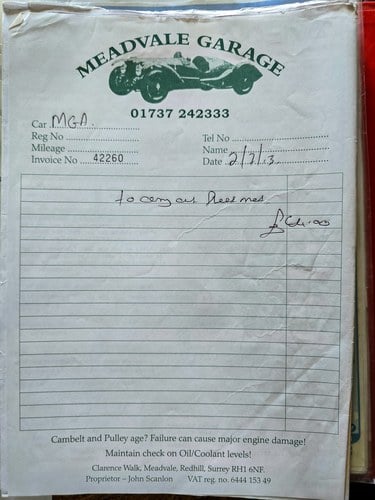 MEADVALE GARAGE
01737 242333
Car MGA
Reg No
Tel No
Mileage
Name
Invoice No 42260
Date 2/7/13
to carry out
£64.00
Cambelt and Pulley age? Failure can cause major engine damage!
Maintain check on Oil/Coolant levels!
Clarence Walk, Meadvale, Redhill, Surrey RH1 6NF.
Proprietor – John Scanlon VAT reg. no. 6444 153 49